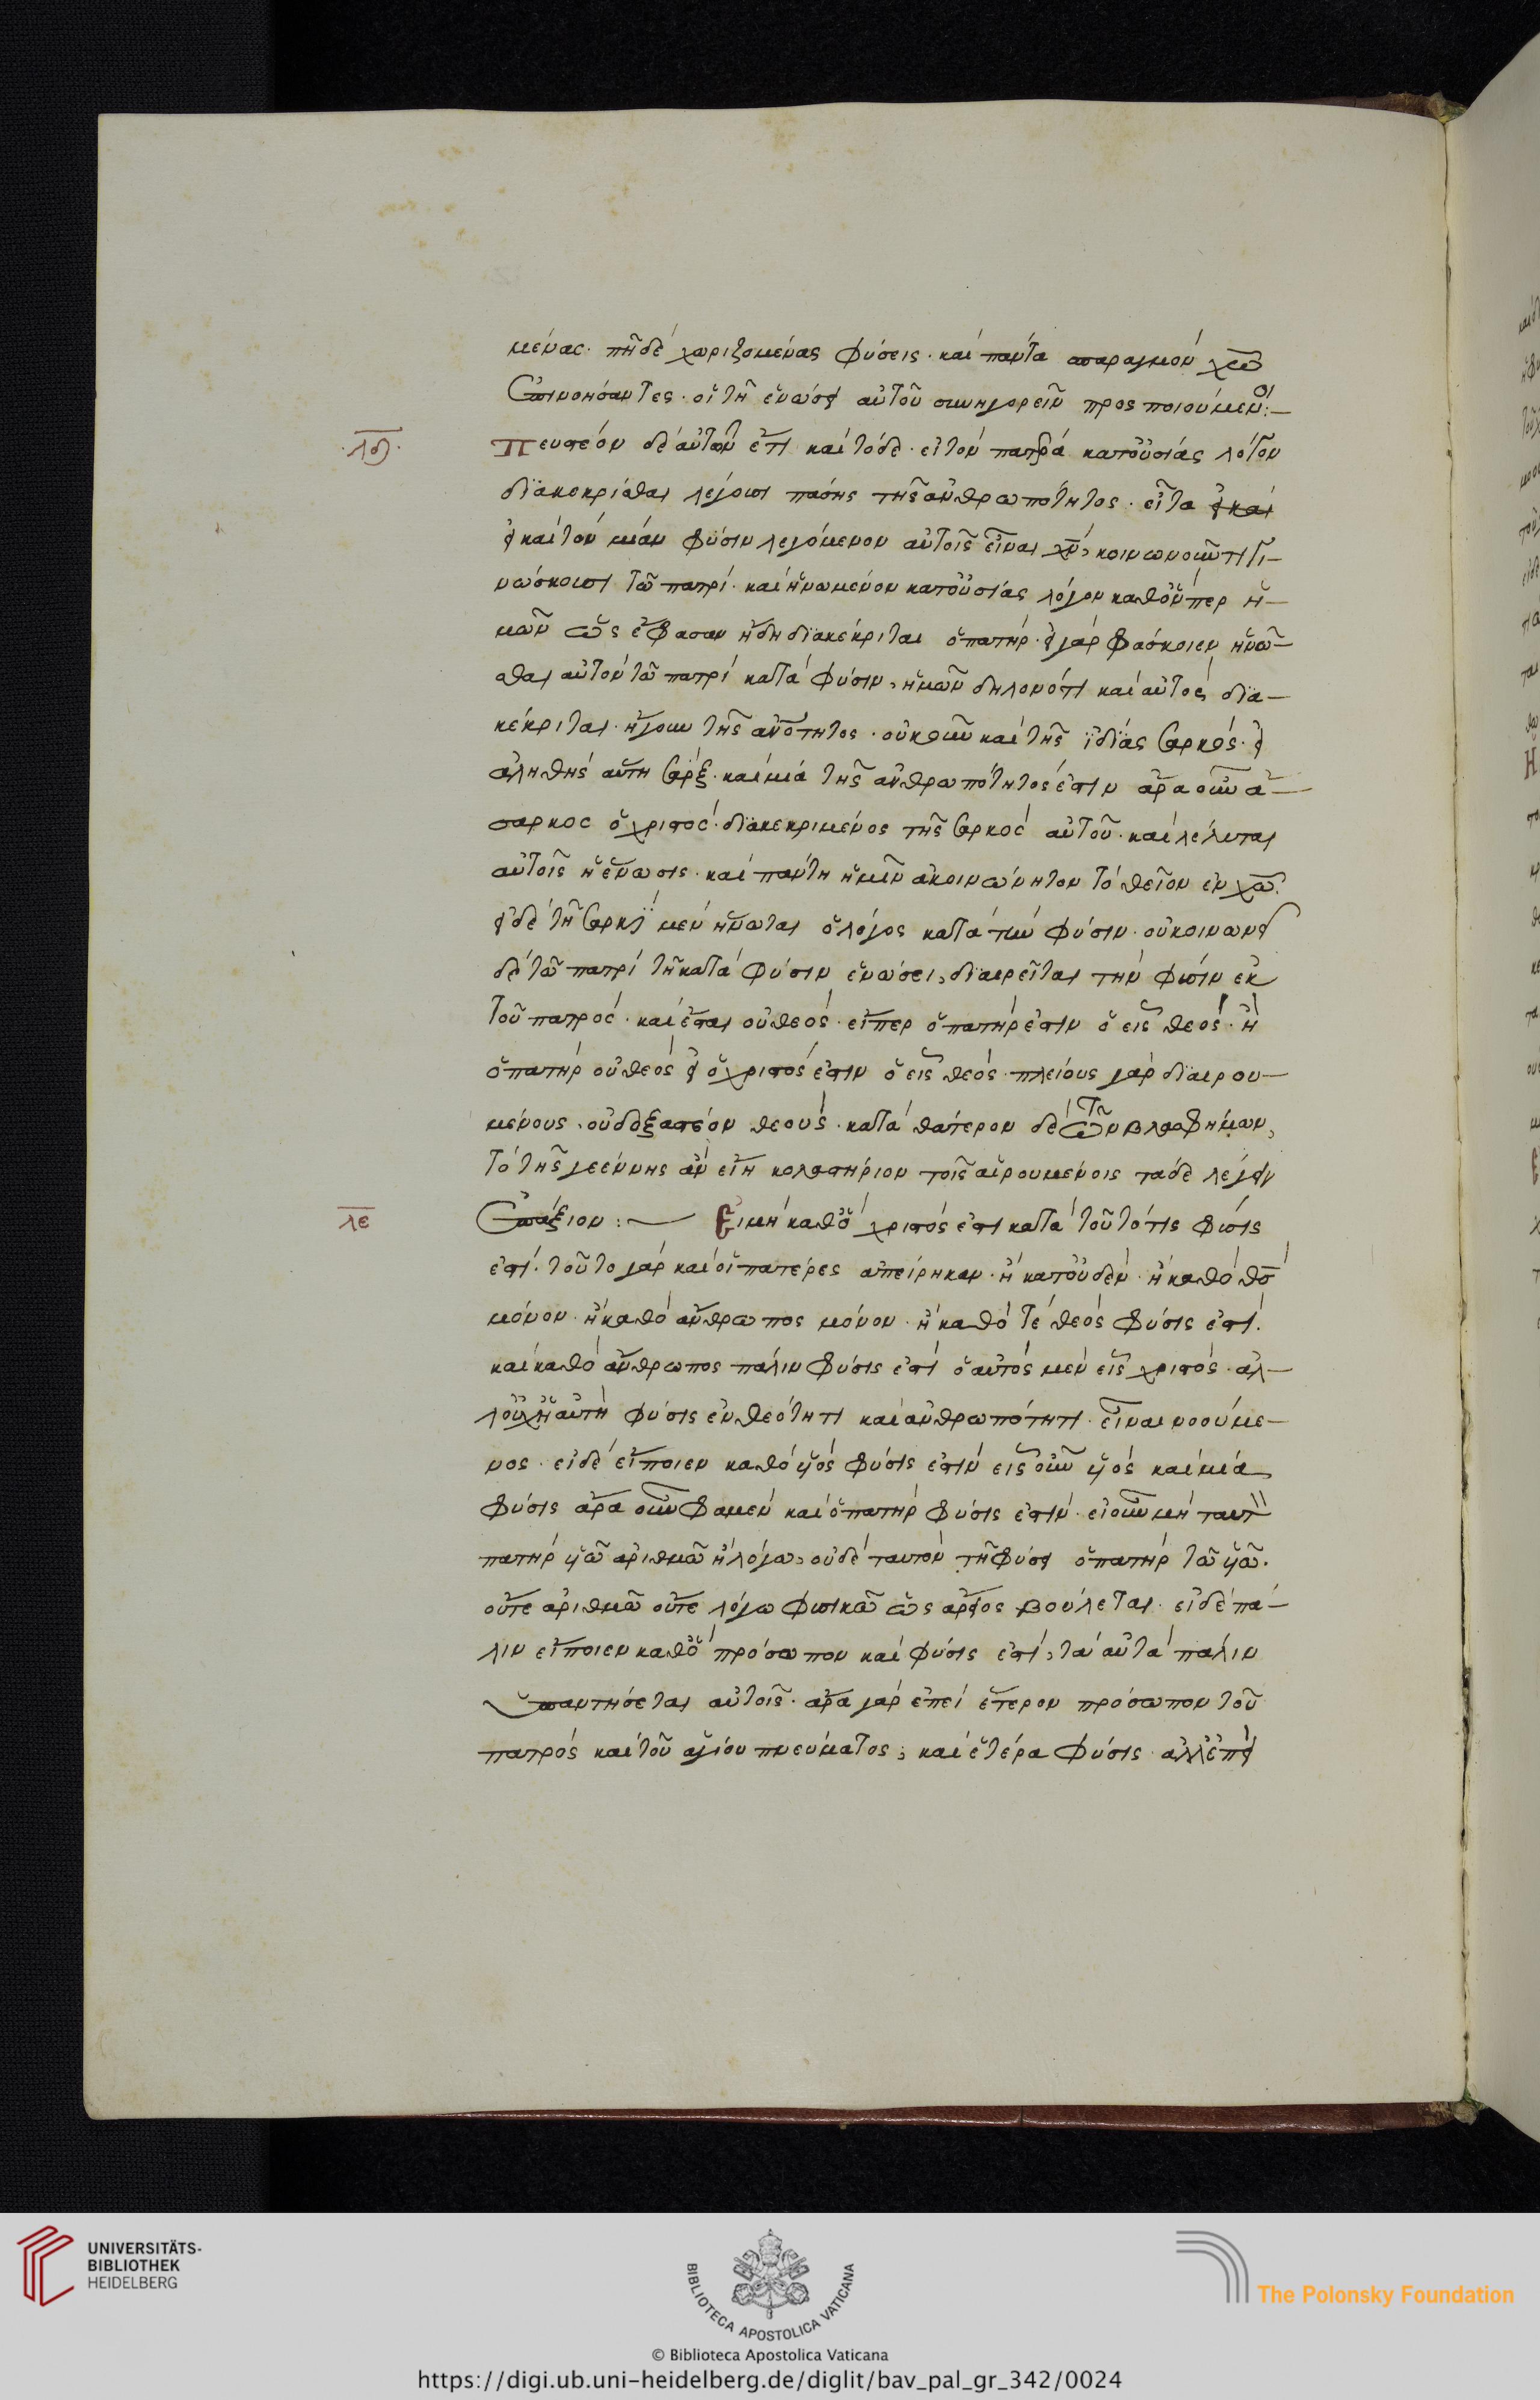 μένας· πῆ δὲ χωριζομένας φύσεις· καὶ πάντα σπαραγμὸν χω
ἐπινοήσαντες· οἱ τῇ ἑνώσει αὐτοῦ συνηγορεῖν προσποιούμενοι:—
·λδ· Πευστέον δὲ αὐτῶν ἔτι καὶ τόδε· εἰ τὸν πατρά κατ' οὐσίας λότον
διακεκρίσθαι λέγουσι πάσης τῆς ἀνθρωπότητος· εἶτα εἰ καὶ
εἰ καὶ τὸν μίαν φύσιν λεγόμενον αὐτοῖς εἶναι χν, κοινωνοῦντι γι—
νώσκουσι τῶ πατρὶ· καὶ ἡνωμένον κατ' οὐσίας λόγον καθ' ὅνπερ ἡ—
μῶν ὡς ἔφασαν ἤδη διακέκριται ὁ πατήρ· εἰ γὰρ φάσκοιεν ἡνῶ—
σθαι αὐτὸν τῶ πατρὶ κατὰ φύσιν, ἡμῶν δηλονότι καὶ αὐτὸς δια—
κέκριται· ἤγουν τῆς ανοτητος· οὐκοῦν καὶ τῆς ἰδίας σαρκός· εἰ
ἀληθὴς αὕτη σάρξ· καὶ μιὰ τῆς ἀνθρωπότητός ἐστιν ἄρα οὖν ἄ—
σαρκος ὁ χριστὸς· διακεκριμένος τῆς σαρκὸς αὐτοῦ· καὶ λέλυται
αὐτοῖς ἡ ἕνωσις· καὶ πάντη ἡμῖν ἀκοινώνητον τὸ θεῖον ἐν χω·
εἰ δὲ τῇ σαρκὶ μὲν ἥνωται ὁ λόγος κατὰ τὴν φύσιν· οὐ κοινωνεῖ
δὲ τῶ πατρὶ τῇ κατὰ φύσιν ἑνώσει, διαιρεῖται τὴν φύσιν ἐκ
τοῦ πατρὸς· καὶ ἔσται οὐ θεὸς· εἴπερ ὁ πατήρ ἐστιν ὁ εἷς θεὸς· ἢ
ὁ πατὴρ οὐ θεὸς εἰ ὁ χριστός ἐστιν ὁ εἷς θεὸς· πλείους γὰρ διαιρου—
μένους, οὐ δεξαστέον θεοὺς· κατὰ θάτερον δὲ τῶν βλασφήμων,
τὸ τῆς γεέννης ἂν εἴη κολαστήριον τοῖς αἱρουμένοις τάδε λέγειν
λε ἐπάξιον:— Εἰ μὴ καθὸ χριστός ἐστι κατὰ τοῦτό τις φύσις
ἐστὶ· τοῦτο γὰρ καὶ οἱ πατέρες ἀπείρηκαν· ἢ κατ' οὐδὲν· ἢ καθὸ θσ
μόνον· ἢ καθὸ ἄνθρωπος μόνον· ἢ καθό τε θεὸς φύσις ἐστὶ·
καὶ καθὸ ἄνθρωπος πάλιν φύσις ἐστὶ ὁ αὐτὸς μὲν εἷς χριστός· ἀλ—
λ' οὐχ ἡ αὐτὴ φύσις ἐν θεότητι καὶ ἀνθρωπότητι· εἶναι νοούμε—
νος· εἰ δὲ εἴποιεν καθὸ υἱός φύσις ἐστὶν εἷς οὖν υἱὸς καὶ μία
φύσις ἄρα οὖν φαμὲν καὶ ὁ πατὴρ φύσις ἐστὶν· εἰ οὖν μὴ ταυτ
πατὴρ υἱῶ ἀριθμῶ ἢ λόγω, οὐδὲ ταυτὸν τῇ φύσει ὁ πατὴρ τῶ υἱῶ·
οὔτε ἀριθμῶ οὔτε λόγω φυσικῶ ὡς ἄρειος βούλεται· εἰ δὲ πά—
λιν εἴποιεν καθὸ πρόσωπον καὶ φύσις ἐστὶ, τὰ αὐτὰ πάλιν
ὑπαντήσεται αὐτοῖς· ἄρα γὰρ ἐπεὶ ἕτερον πρόσωπον τοῦ
πατρός καὶ τοῦ ἁγίου πνεύματος, καὶ ἑτέρα φύσις· ἀλλ' ἐπεὶ
UNIVERSITÄTS-
BIBLIOTHEK
HEIDELBERG
BIBLIOTECA APOSTOLICA VATICANA
The Polonsky Foundation
© Biblioteca Apostolica Vaticana
https://digi.ub.uni-heidelberg.de/diglit/bav_pal_gr_342/0024